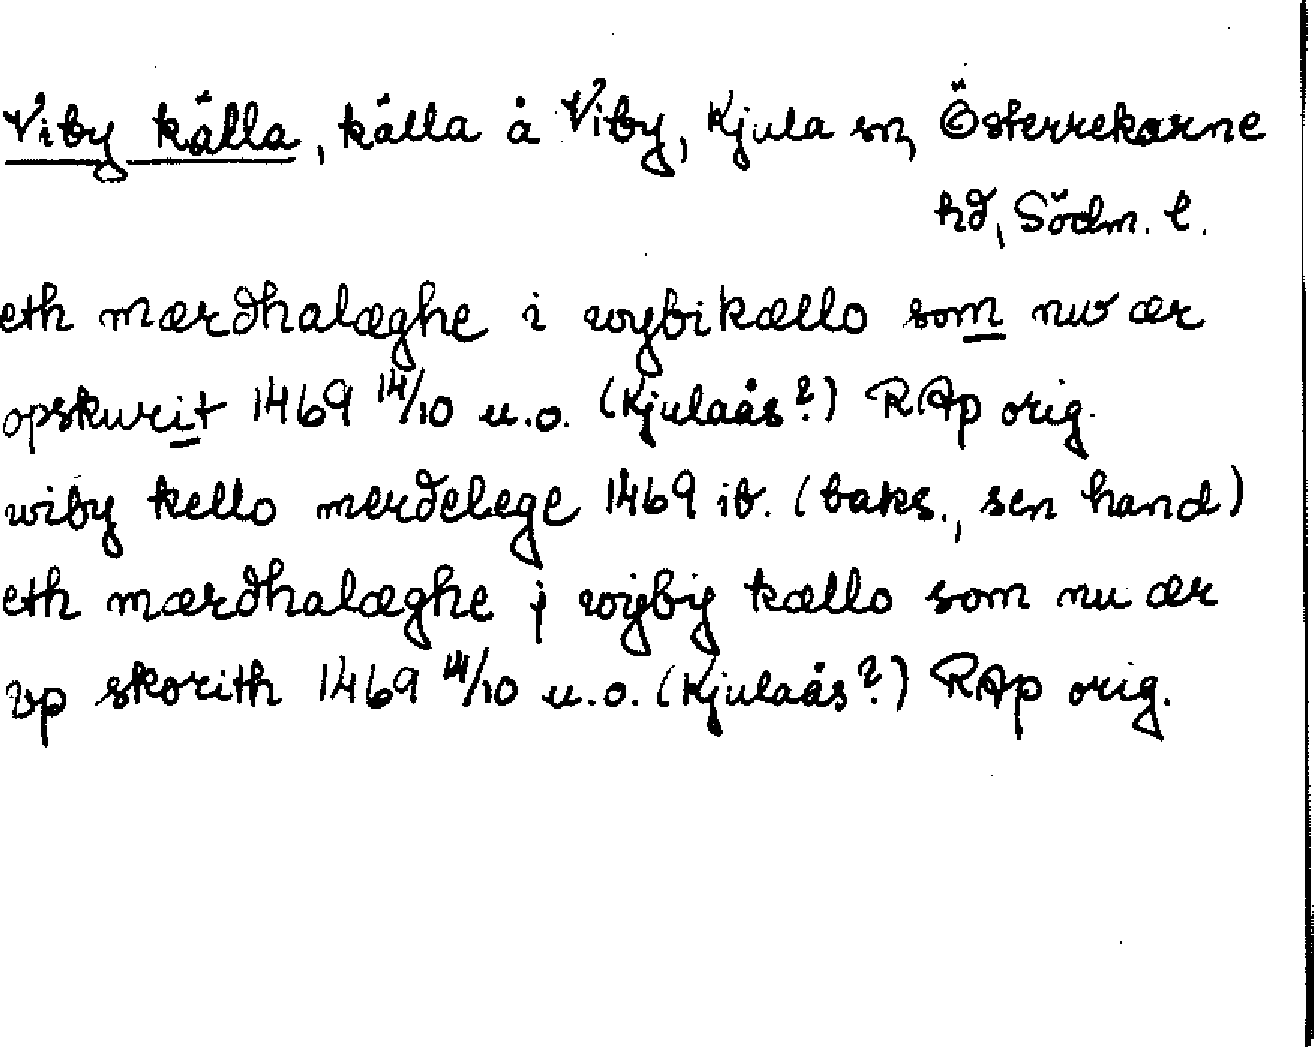 Viby källa, källa å Viby, Kjula sn, Österrekarne
hd, Södm. l.
eth mærdhalæghe i wybikællo som nw ær
opskurit 1469 14/10 u.o. (Kjulaås?) RAp orig.
wiby kello merdelege 1469 ib. (baks., sen hand)
eth mærdhalæghe j wÿbÿ kællo som nu ær
vp skorith 1469 14/10 u.o. (Kjulaås?) RAp orig.